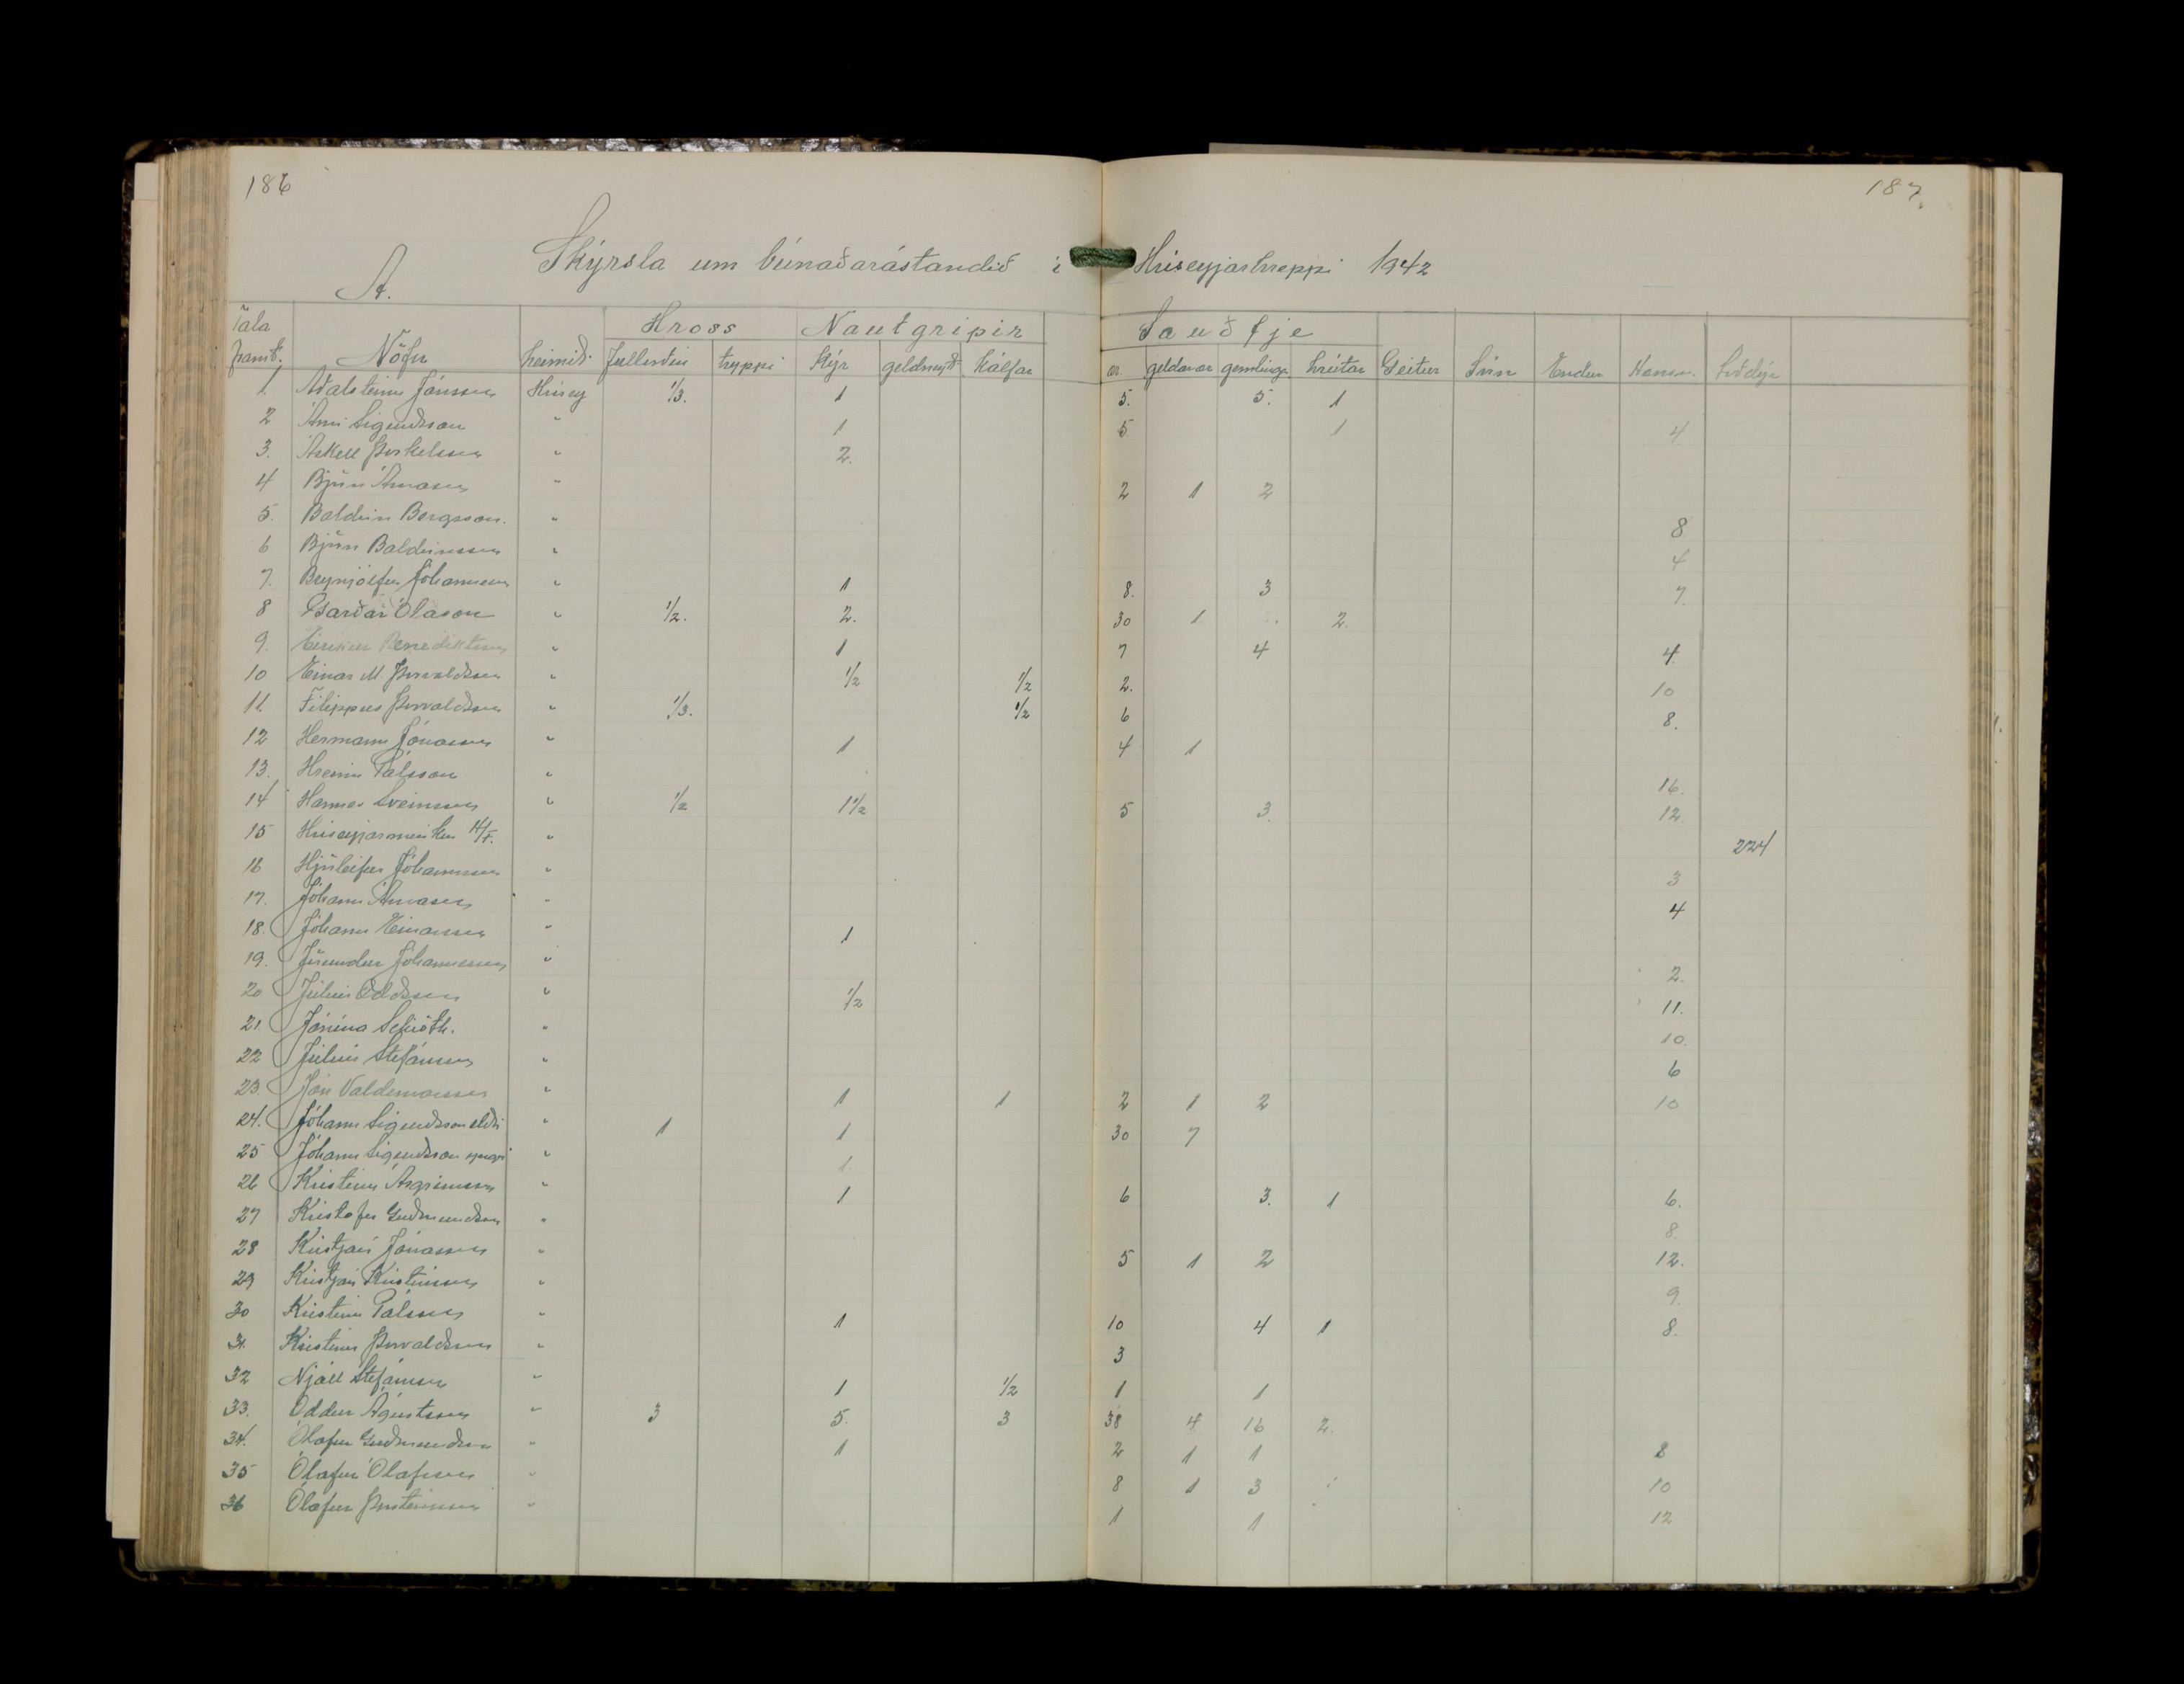 186
187.
A. Skýrsla um búnaðarástandið í Hríseyjarhreppi 1942
Tala Hross Nautgripir Sauðfje
framt. Nöfn heimili fullorðin tryppi Kýr geldneyti Kálfar ær geldar ær gemlingar hrútar Geitur Svín Endur Hænsn Loðdýr
1. Aðalsteinn Jónsson Hrísey 1/3. 1 5. 5. 1
2 Árni Sigurðsson " 1 5 1 4
3. Áskell Þorkelsson " 2.
4 Björn Árnason " 2 1 2
5. Baldvin Bergsson. " 8
6 Björn Baldvinsson " 4
7. Brynjólfur Jóhannesson " 1 8. 3 7.
8 Garðar Ólason " 1/2. 2. 30 1 2.
9. Benediktsson " 1 7 4 4
10 Einar M. Þorvaldsson " 1/2 1/2 2. 10
11. Filippus Þorvaldsson " 1/3. 1/2 6 8.
12 Hermann Jónasson " 1 4 1
13. Hreinn Pálsson " 16.
14 Hannes Sveinsson " 1/2 1 1/2 5 3. 12.
15 Hríseyjarminkur H/f. " 224
16 Hjörleifur Jóhannsson " 3
17. Jóhann Árnason " 4
18. Jóhann Einarsson " 1
19. Jörundur Jóhannesson " 2.
20 Júlíus Oddsson " 1/2 11.
21. Jónína Schiöth. " 10.
22 Júlíus Stefánsson " 6
23. Jón Valdemarsson " 1 1 2 1 2 10
24. Jóhann Sigurðsson eldri " 1 1 30 7
25 Jóhann Sigurðsson yngri " 1
26 Kristinn Ásgrímsson " 1 6 3. 1 6.
27 Kristofer Guðmundsson " 8.
28 Kristján Jónasson " 5 1 2 12.
29 Kristján Kristinsson " 9.
30 Kristinn Pálsson " 1 10 4 1 8.
31. Kristinn Þorvaldsson " 3
32 Njáll Stefánsson " 1 1/2 1 1
33. Oddur Ágústsson " 3 5. 3 38 4 16 2.
34. Ólafur Guðmundsson " 1 2 1 1 8
35 Ólafur Ólafsson " 8 1 3 10
36 Ólafur Þorsteinsson " 1 1 12